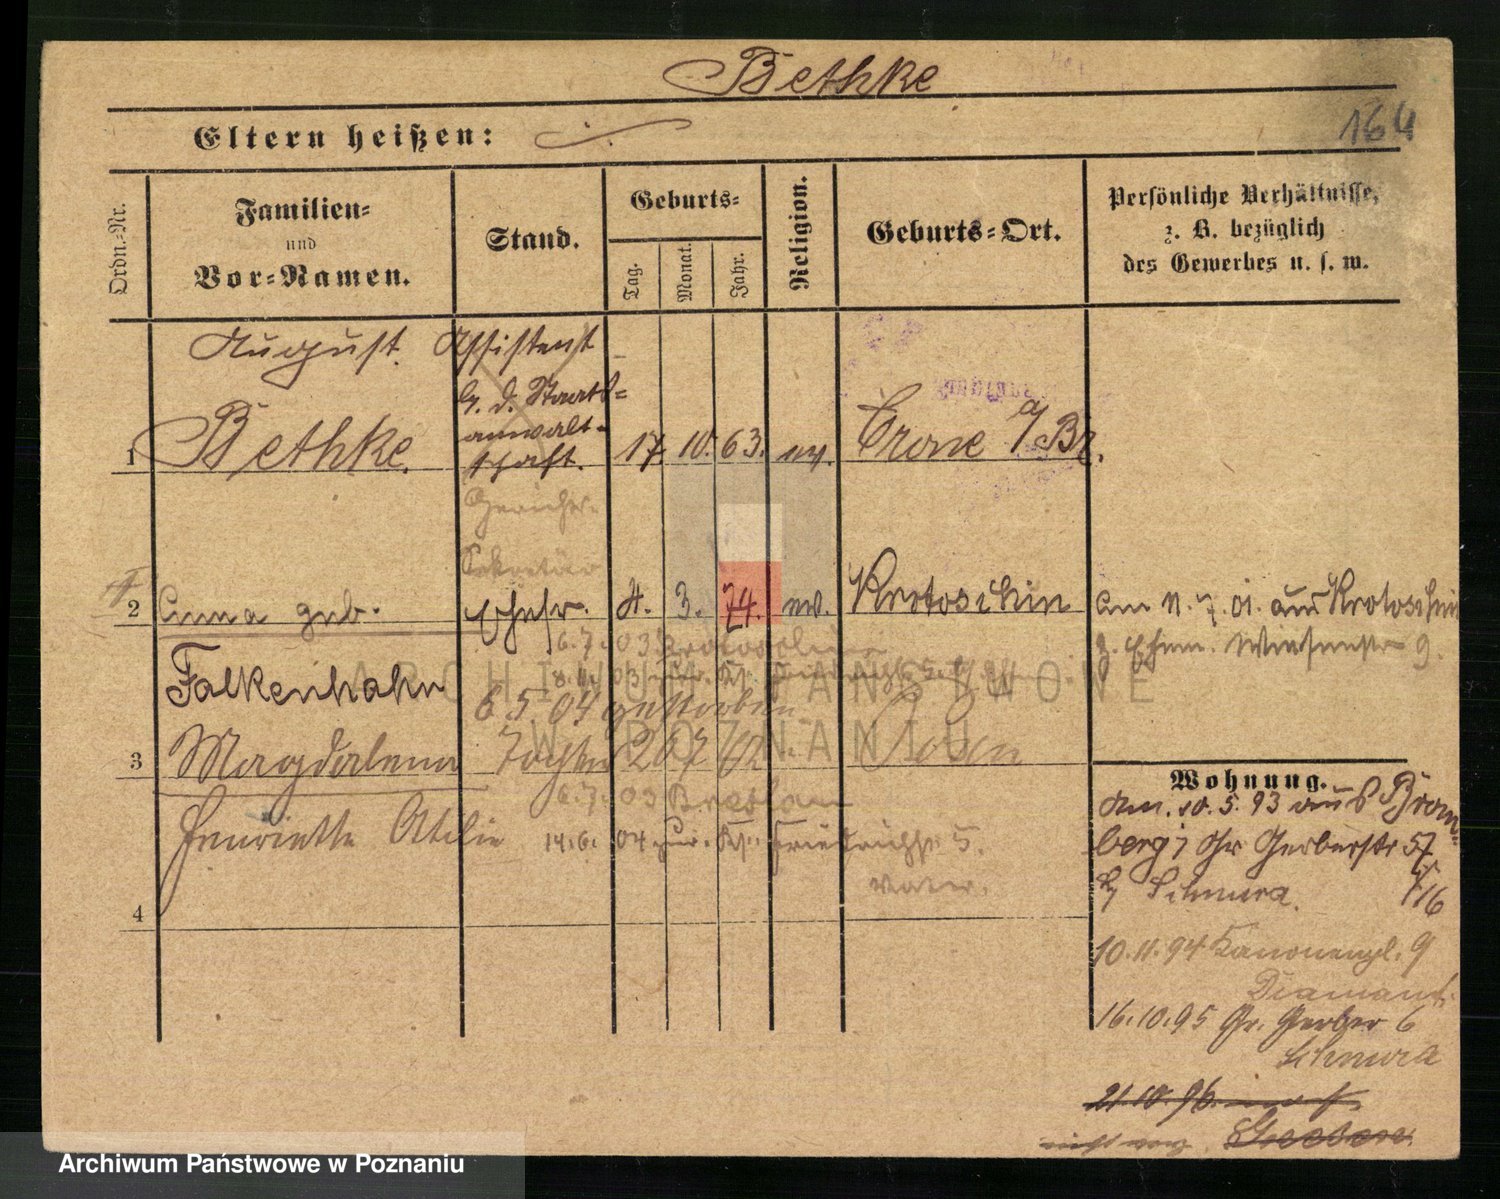 Bethke
164
Eltern heißen:
Ordn.-Nr.
Familien-
und
Vor-Namen.
Stand.
Geburts-
Tag.
Monat.
Jahr.
Religion.
Geburts-Ort.
Persönliche Verhältnisse,
z. B. bezüglich
des Gewerbes u. s. w.
August Assistent
b. d. Staats-
anwalt-
schaft.
1 Bethke 17. 10. 63. ev. Crone a/Br.
Gerichts-
Sekretär
2 Anna geb. Ehefr. 4. 3. 74. ev. Krotoschin am 11. 7. 01. aus Krotoschin
6.7.03 Krotoschin
z. Ehem. 9.
Falkenhahn
6 5 04 gestorben
3 Magdalena Tochter 20 7 02 Posen
Wohnung.
6.7.03 Breslau
am 10.5.93 aus Brom-
Henriette 14.6.04 zur. Friedrichstr. 5.
berg; Gr Gerberstr 57
Vater.
b/ Schmura. 16
4
10.11.94 Kanonenpl. 9
Diamant
16.10.95 Gr. Gerber 6
Schmura
21.10.96
ARCHIWUM PAŃSTWOWE
W POZNANIU
Archiwum Państwowe w Poznaniu